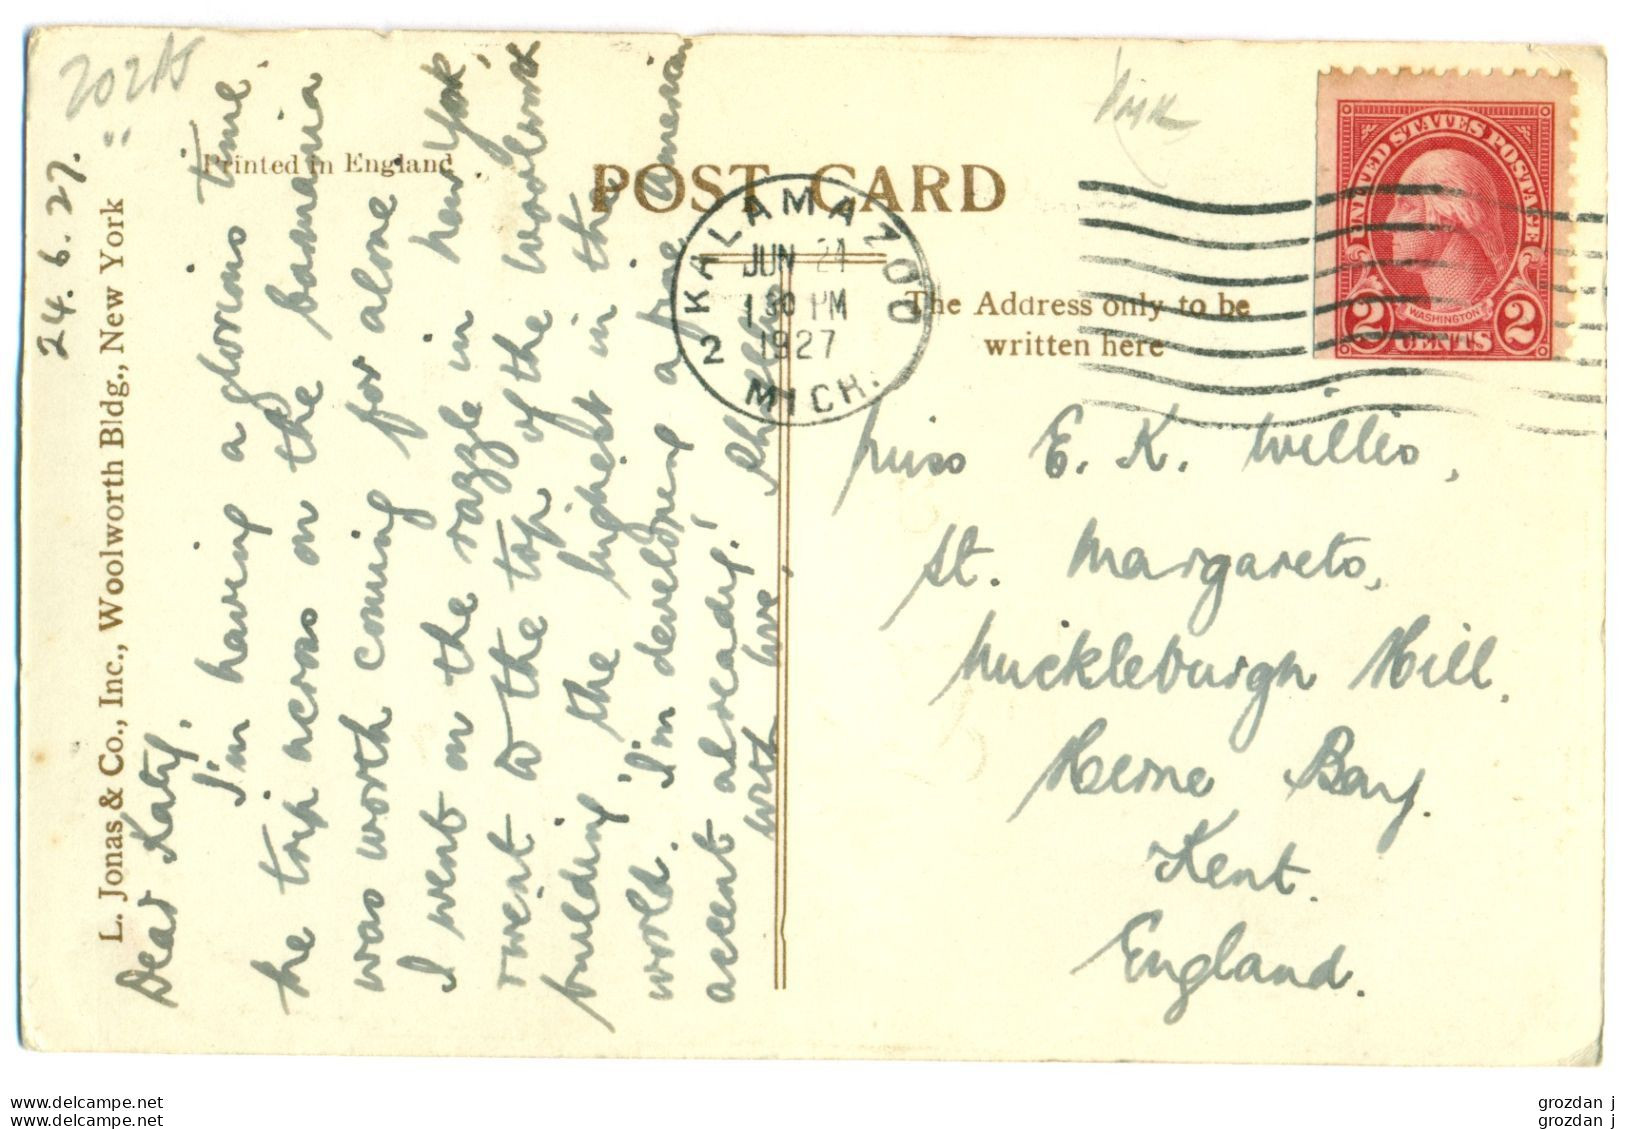 24.6.27.
L. Jonas & Co., Inc., Woolworth Bldg., New York
Printed in England
POST CARD
The Address only to be
written here
KALAMAZOO
2
JUN 24
1 30 PM
1927
MICH.
UNITED STATES POSTAGE
WASHINGTON
2 CENTS 2
Dear Katy,
I'm having a glorious time.
the trip across on the
was worth coming for alone.
I went on the razzle in New York,
& went to the top of the Woolworth
building, the highest in the
world. I'm developing a fine American
accent already.
with love,
Miss E. K. Willis,
St. Margarets,
Mickleburgh Hill,
Herne Bay.
Kent.
England.
www.delcampe.net
www.delcampe.net
grozdan j
grozdan j